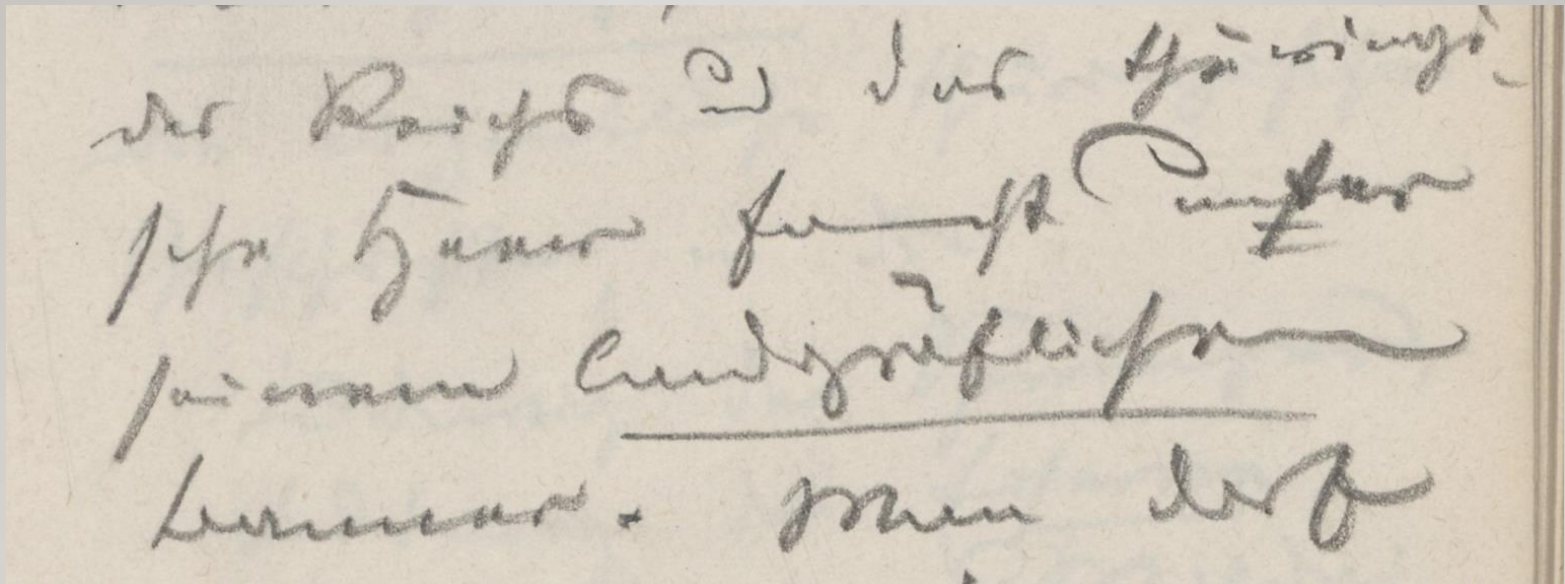 des Reichs und das thüringi-
sche Heer kämpft unter
seinem landgräflichen
banner. Man darf